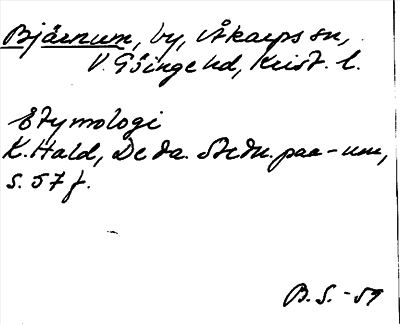 Bjärnum, by, Åkarps sn,
V. Göinge hd, Krist. l.
Etymologi
K. Hald, De da. Stedn. paa -um,
s. 57 f.
B. S. -59